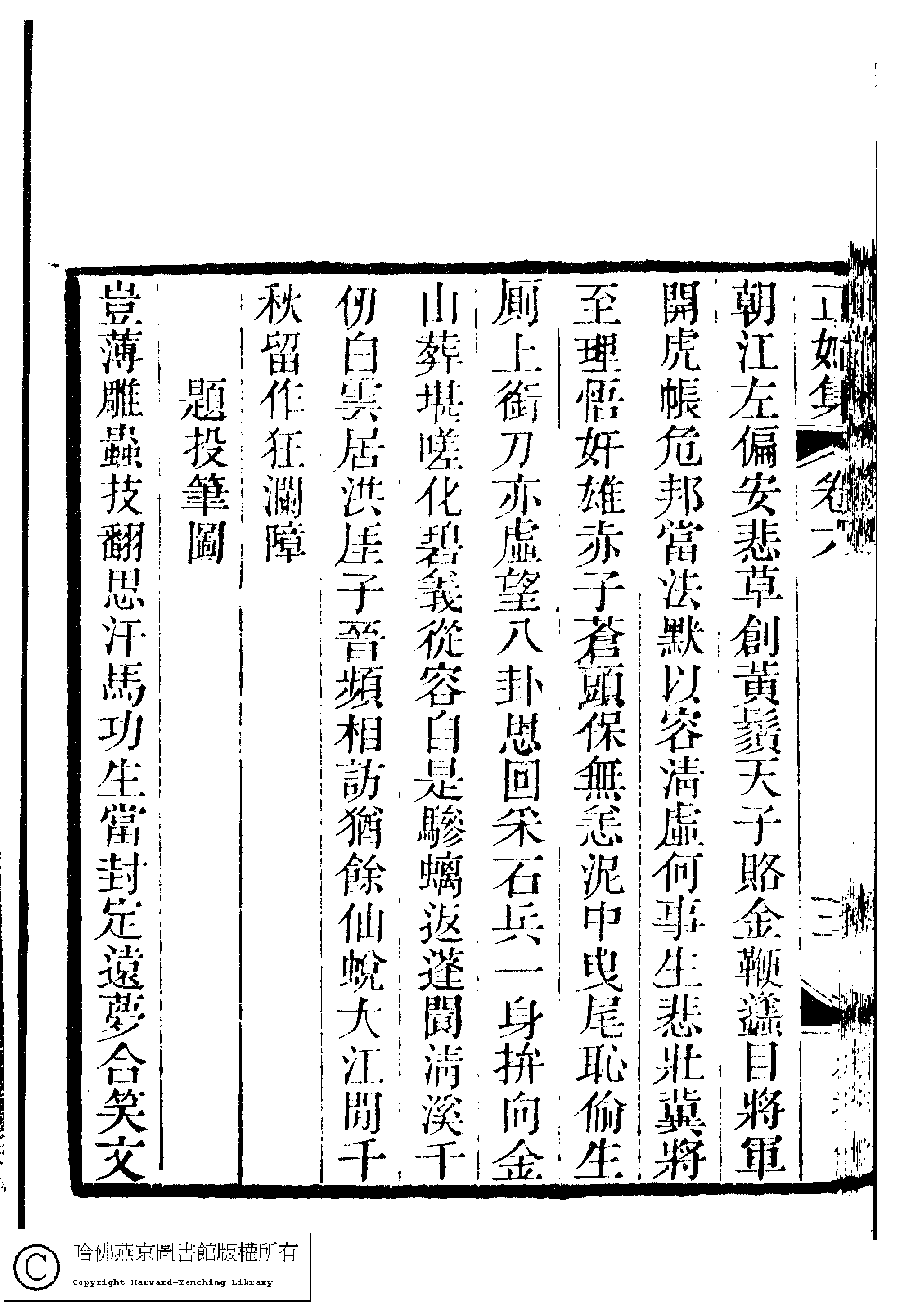 正如集
卷六
三
朝江左偏安悲草創黃鬚天子賂金鞭蠭目將軍
開虎帳危邦當法默以容淸虛何事生悲壯冀將
至理悟奸雄赤子蒼頭保無恙泥中曳尾恥偷生
厠上銜刀亦虛望八卦思回采石兵一身拚向金
山葬堪嗟化碧義從容自是驂螭返蓬閬淸溪千
仞白雲居洪厓子晉頻相訪猶餘仙蛻大江閒千
秋留作狂瀾障
題投筆圖
豈薄雕蟲技翻思汗馬功生當封定遠夢合笑文
哈佛燕京圖書館版權所有
Copyright Harvard-Yenching Library